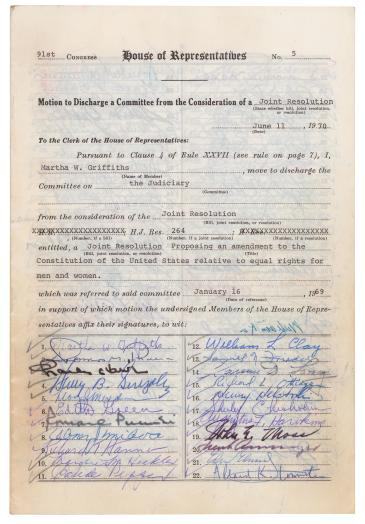 91st CONGRESS House of Representatives No. 5
Motion to Discharge a Committee from the Consideration of a Joint Resolution
(State whether bill, joint resolution, or resolution)
June 11, 1970
(Date)
To the Clerk of the House of Representatives:
Pursuant to Clause 4 of Rule XXVII (see rule on page 7), I,
Martha W. Griffiths, move to discharge the
(Name of Member)
Committee on the Judiciary
(Committee)
from the consideration of the Joint Resolution
(Bill, joint resolution, or resolution)
H.J. Res. 264
(Number, if a bill) (Number, if joint resolution) (Number, if a resolution)
entitled, a Joint Resolution Proposing an amendment to the
(Bill, joint resolution, or resolution) (Title)
Constitution of the United States relative to equal rights for
men and women.
which was referred to said committee January 16 1969
(Date of reference)
in support of which motion the undersigned Members of the House of Repre-
sentatives affix their signatures, to wit:
1. Martha W. Griffiths 12. William L. Clay
2. 13.
3. 14.
4. 15. Richard L. Ottinger
5. 16.
6. Edith Green 17. Shirley Chisholm
7. 18.
8. 19. John E. Moss
9. 20.
10. Margaret M. Heckler 21.
11. Claude Pepper 22.